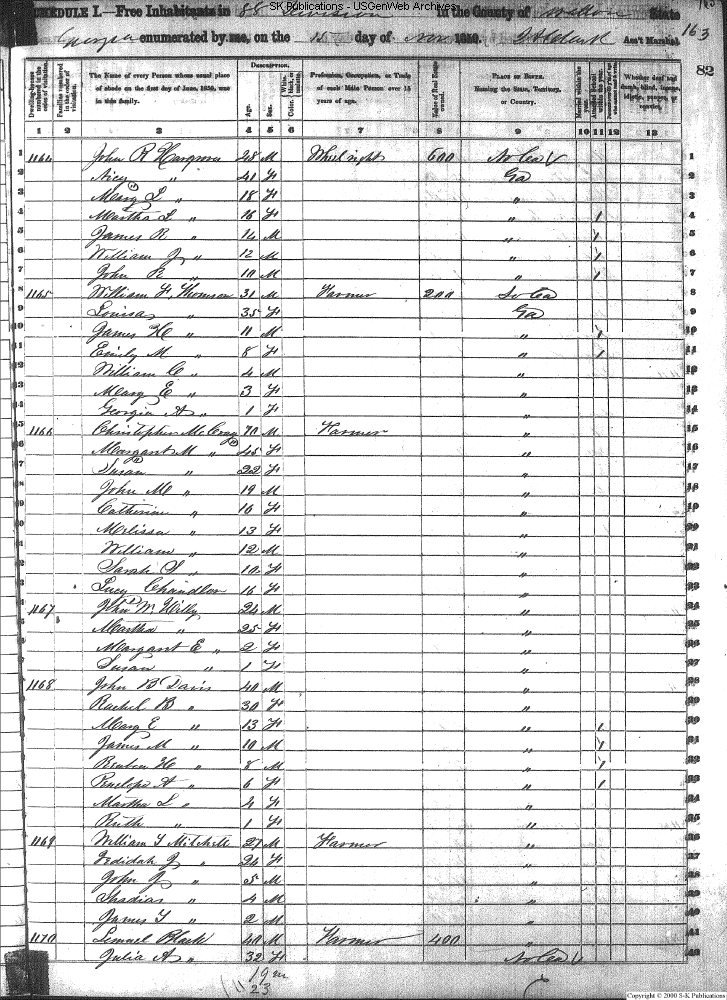 SK Publications - USGenWeb Archives
SCHEDULE I.—Free Inhabitants in 88 Division in the County of Walton State
Georgia enumerated by me, on the 15 day of Nov 1850. Ass't Marshal 163
82
Dwelling-houses numbered in the order of visitation.
Families numbered in the order of visitation.
The Name of every Person whose usual place of abode on the first day of June, 1850, was in this family.
DESCRIPTION.
Age.
Sex.
Color.
Profession, Occupation, or Trade of each Male Person over 15 years of age.
Value of Real Estate owned.
PLACE OF BIRTH. Naming the State, Territory, or Country.
Married within the year.
1 2 3 4 5 6 7 8 9 10 11 12 13
1 1164 John R Hargrove 48 M Wheelright 600 No Ca 1
2 " 41 F Ga 2
3 Mary L " 18 F " 3
4 Martha L " 16 F " 1 4
5 James R " 14 M " 1 5
6 William J " 12 M " 1 6
7 John R " 10 M " 1 7
8 1165 William H Thomson 31 M Farmer 200 So Ca 8
9 Louisa " 35 F Ga 9
James H " 11 M " 1 10
Emily M " 8 F " 1 11
William C " 4 M " 12
Mary E " 3 F " 13
Georgia A " 1 F " 14
1166 Christopher McCray 70 M Farmer " 15
Margaret M " 45 F " 16
Susan " 22 F " 17
John M " 19 M " 18
Catherine " 16 F " 19
Melissa " 13 F " 20
William " 12 M " 21
Sarah S " 10 F " 22
Lucy Chandler 16 F " 23
1167 John W 24 M " 24
Martha " 25 F " 25
Margaret E " 2 F " 26
Susan " 1 F " 27
1168 John B Davis 40 M " 28
Rachel B " 30 F " 29
Mary E " 13 F " 1 30
James M " 10 M " 1 31
Reuben H " 8 M " 1 32
Penelope A " 6 F " 1 33
Martha L " 4 F " 34
Ruth " 1 F " 35
1169 William T Mitchell 27 M Farmer " 36
Jedidah J " 24 F " 37
John J " 5 M " 38
Thadias " 4 M " 39
James T " 2 M " 40
1170 Lemuel Black 40 M Farmer 400 " 41
Julia A " 32 F No Ca 42
19 m
23
Copyright © 2000 S-K Publications